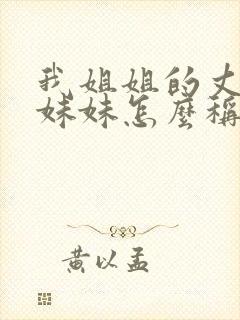 我姐姐的丈
妹妹怎麼稱
黃以孟